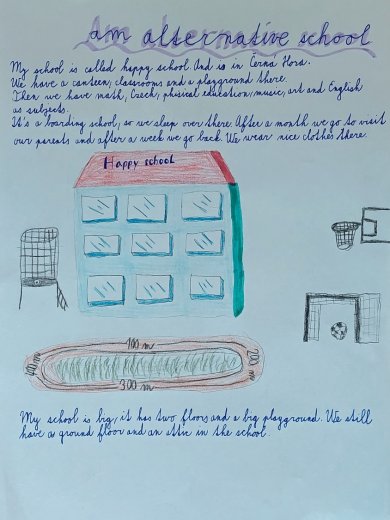 am alternative school
My school is called happy school. And is in Černa Hora.
We have a canteen, classrooms and a playground there.
Then we have math, Czech, physical education, music, art and English
as subjects.
It's a boarding school, so we sleep over there. After a month we go to visit
our parents and after a week we go back. We wear nice clothes there.
Happy school
100 m
400 m
200 m
300 m
My school is big, it has two floors and a big playground. We still
have a ground floor and an attic in the school.